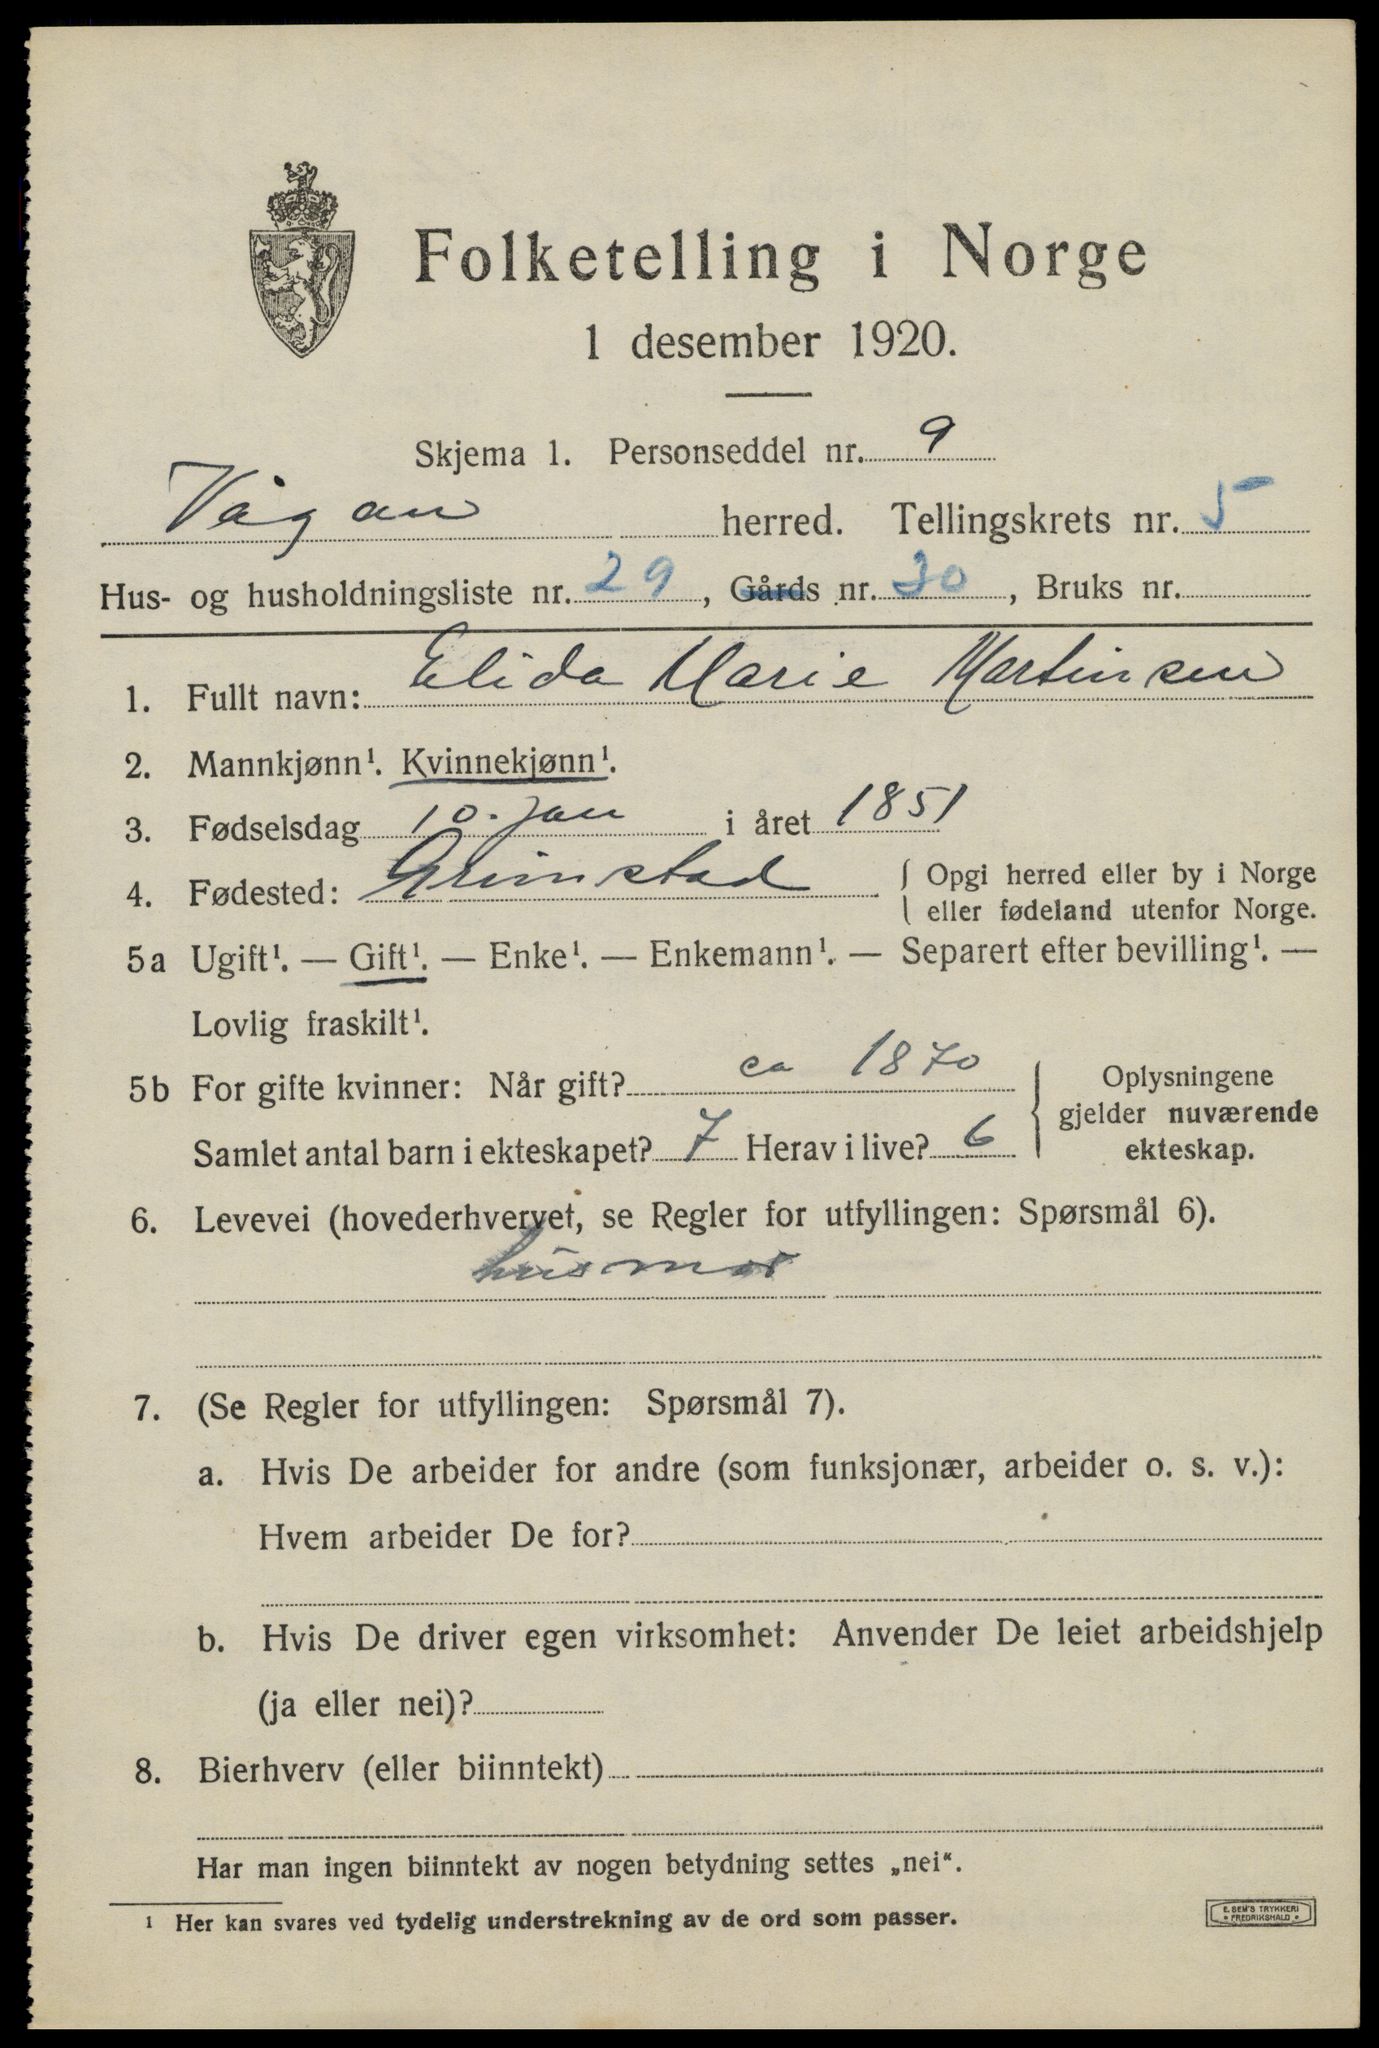 Folketelling i Norge
1 desember 1920.
Skjema 1. Personseddel nr. 9
Vågan herred. Tellingskrets nr. 5
Hus- og husholdningsliste nr. 29, Gårds nr. 30, Bruks nr.
1. Fullt navn: Elida Marie Martinsen
2. Mannkjønn¹. Kvinnekjønn¹.
3. Fødselsdag 10. jan i året 1851
4. Fødested: Grimstad { Opgi herred eller by i Norge
eller fødeland utenfor Norge.
5a Ugift¹. — Gift¹. — Enke¹. — Enkemann¹. — Separert efter bevilling¹. —
Lovlig fraskilt¹.
5b For gifte kvinner: Når gift? ca 1870
Samlet antal barn i ekteskapet? 7 Herav i live? 6
Oplysningene
gjelder nuværende
ekteskap.
6. Levevei (hovederhvervet, se Regler for utfyllingen: Spørsmål 6).
husmor
7. (Se Regler for utfyllingen: Spørsmål 7).
a. Hvis De arbeider for andre (som funksjonær, arbeider o. s. v.):
Hvem arbeider De for?
b. Hvis De driver egen virksomhet: Anvender De leiet arbeidshjelp
(ja eller nei)?
8. Bierhverv (eller biinntekt)
Har man ingen biinntekt av nogen betydning settes „nei“.
¹ Her kan svares ved tydelig understrekning av de ord som passer.
E. SEM'S TRYKKERI
• FREDRIKSHALD •